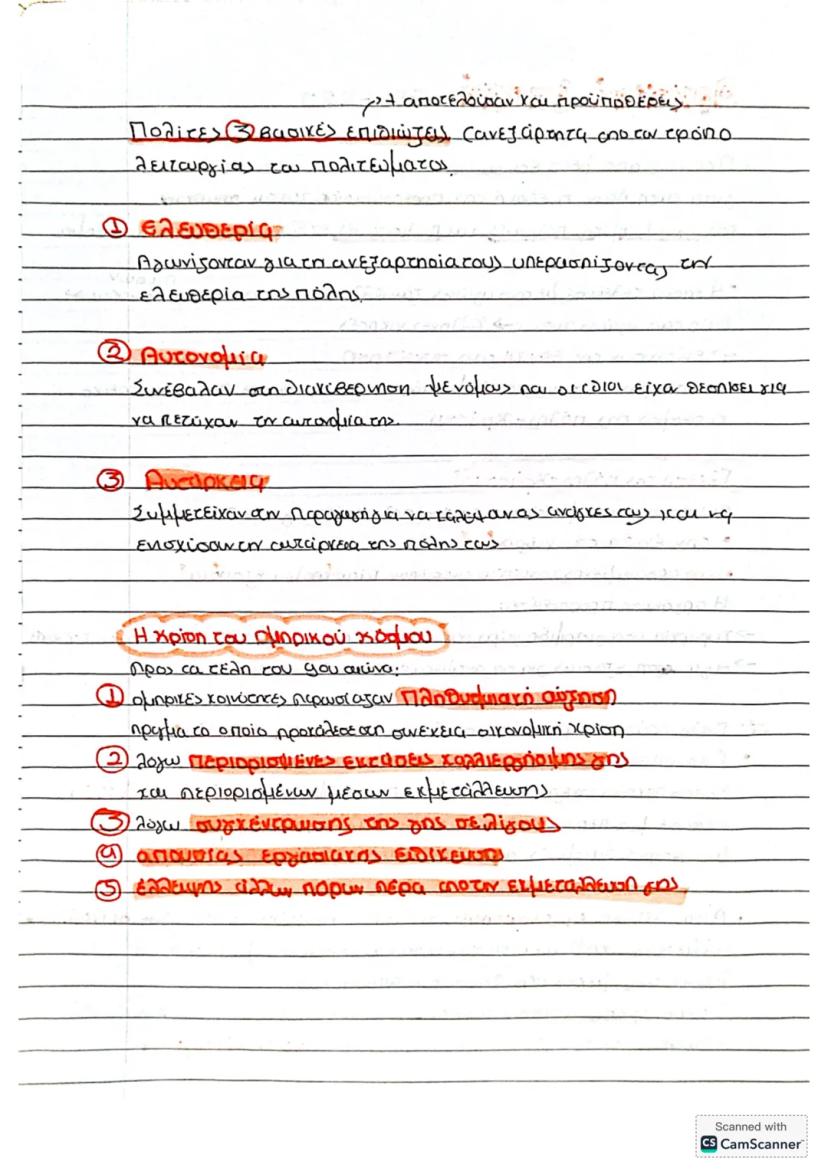 → + αποτελούσαν και προϋποθέσεις
Πολίτες ③ βασικές επιδιώξεις (ανεξάρτητα απο τον τρόπο
λειτουργίας του πολιτεύματος
① Ελευθερία
Αγωνίζονταν για τη ανεξαρτησία τους υπερασπίζοντας την
ελευθερία της πόλης
② Αυτονομία
Συνέβαλαν στη διακυβέρνηση με νόμους που οι ίδιοι είχα θεσπίσει για
να πετύχαν την αυτονομία της.
③ Αυτάρκεια
Συμμετείχαν στην παραγωγή για να καλύψαν τις ανάγκες τους και να
ενισχύσουν την αυτάρκεια της πόλης τους
Η κρίση του ομηρικού κόσμου
Προς τα τέλη του 9ου αιώνα:
① ομηρικές κοινότητες παρουσίαζαν πληθυσμιακή αύξηση
πράγμα το οποίο προκάλεσε στη συνέχεια οικονομική κρίση
② λόγω περιορισμένες εκτάσεις καλλιεργήσιμης γης
και περιορισμένων μέσων εκμετάλλευσης
③ λόγω συγκέντρωσης της γης σε λίγους
④ απουσίας εργασιακής ειδίκευσης
⑤ έλλειψης άλλων πόρων πέρα απο την εκμετάλλευση γης
Scanned with
CS CamScanner